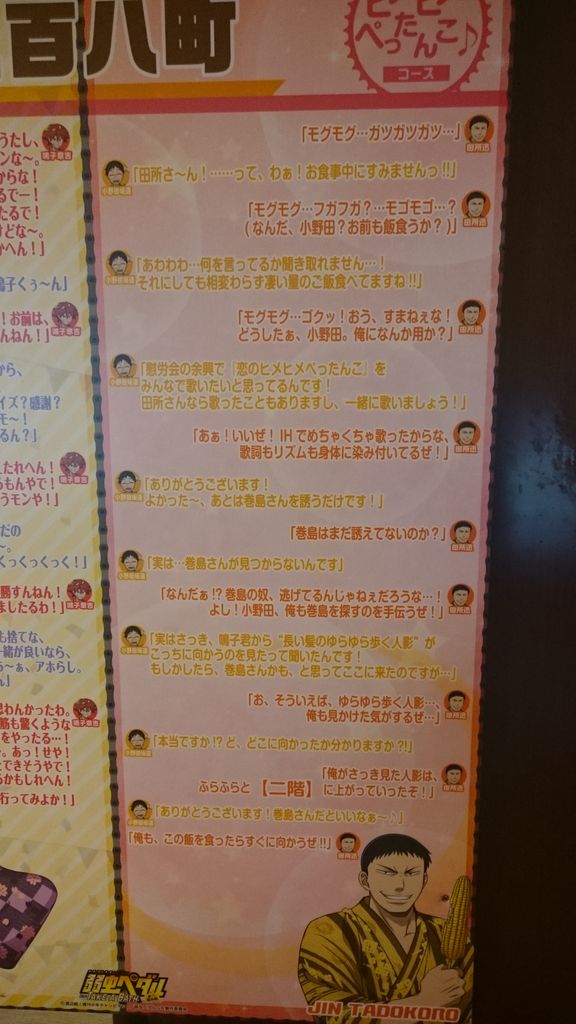 百八町
ぺったんこ♪
コース
「モグモグ…ガツガツガツ…」
田所迅
「田所さ～ん！……って、わぁ！お食事中にすみませんっ!!」
小野田坂道
「モグモグ…フガフガ？…モゴモゴ…？
(なんだ、小野田？お前も飯食うか？)」
田所迅
「あわわわ…何を言ってるか聞き取れません…！
それにしても相変わらず凄い量のご飯食べてますね!!」
小野田坂道
「モグモグ…ゴクッ！おう、すまねぇな！
どうしたぁ、小野田。俺になんか用か？」
田所迅
「慰労会の余興で『恋のヒメヒメぺったんこ』を
みんなで歌いたいと思ってるんです！
田所さんなら歌ったこともありますし、一緒に歌いましょう！」
小野田坂道
「あぁ！いいぜ！IHでめちゃくちゃ歌ったからな、
歌詞もリズムも身体に染み付いてるぜ！」
田所迅
「ありがとうございます！
よかった～、あとは巻島さんを誘うだけです！」
小野田坂道
「巻島はまだ誘えてないのか？」
田所迅
「実は…巻島さんが見つからないんです」
小野田坂道
「なんだぁ!?巻島の奴、逃げてるんじゃねぇだろうな…！
よし！小野田、俺も巻島を探すのを手伝うぜ！」
田所迅
「実はさっき、鳴子君から“長い髪のゆらゆら歩く人影”が
こっちに向かうのを見たって聞いたんです！
もしかしたら、巻島さんかも、と思ってここに来たのですが…」
小野田坂道
「お、そういえば、ゆらゆら歩く人影…、
俺も見かけた気がするぜ…」
田所迅
「本当ですか!?ど、どこに向かったか分かりますか?!」
小野田坂道
「俺がさっき見た人影は、
ふらふらと【二階】に上がっていったぞ！」
田所迅
「ありがとうございます！巻島さんだといいなぁ～♪」
小野田坂道
「俺も、この飯を食ったらすぐに向かうぜ!!」
田所迅
JIN TADOKORO
弱虫ペダル
うたし、
ンな～。
からな！
るでー！
たるで！
けどな～。
かへん！」
鳴子章吉
鳴子くぅ～ん」
！お前は、
んねん！」
鳴子章吉
から、
イズ？感謝？
モ～！
るん？」
たれへん！
るもんやで！
うモンや！」
鳴子章吉
だの
～。
くっくっくっ！」
勝すんねん！
ましたるわ！」
鳴子章吉
も捨てな、
一緒が良いなら、
～ぁ、アホらし。
思わんかったわ。
筋も驚くような
をやったる…！
～。あっ！せや！
とできそうやで！
るかもしれへん！
行ってみよか！」
鳴子章吉